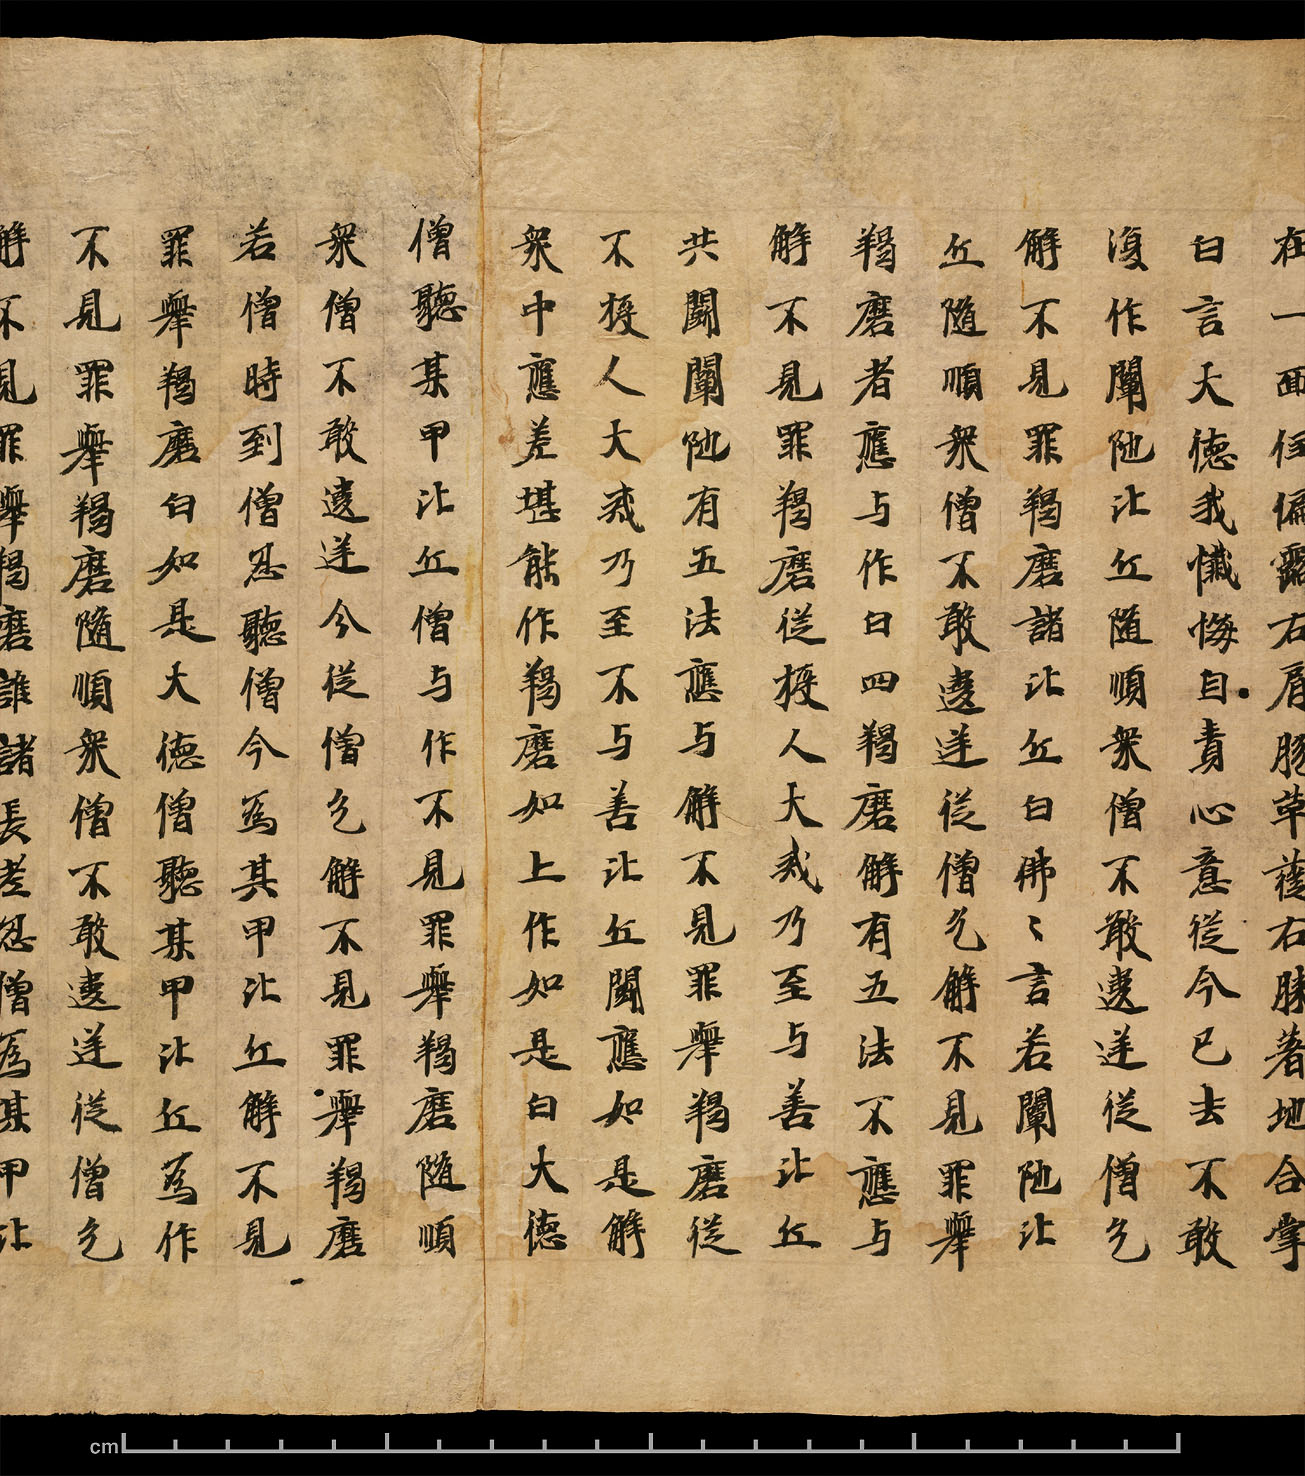 在一面住偏露右肩脱革蓰右膝著地合掌
白言大德我懺悔自責心意從今已去不敢
復作闡陁比丘随順衆僧不敢違逆從僧乞
解不見罪羯磨諸比丘白佛〻言若闡陁比
丘隨順衆僧不敢違逆從僧乞解不見罪舉
羯磨者應与作白四羯磨解有五法不應与
解不見罪羯磨從授人大戒乃至与善比丘
共鬪闡陁有五法應与解不見罪舉羯磨從
不授人大戒乃至不与善比丘鬪應如是解
衆中應差堪能作羯磨如上作如是白大德
僧聽某甲比丘僧与作不見罪舉羯磨随順
衆僧不敢違逆今從僧乞解不見罪舉羯磨
若僧時到僧忍聽僧今爲某甲比丘解不見
罪舉羯磨白如是大德僧聽某甲比丘爲作
不見罪舉羯磨隨順衆僧不敢違逆從僧乞
解不見罪舉羯磨誰諸長老忍僧爲某甲比